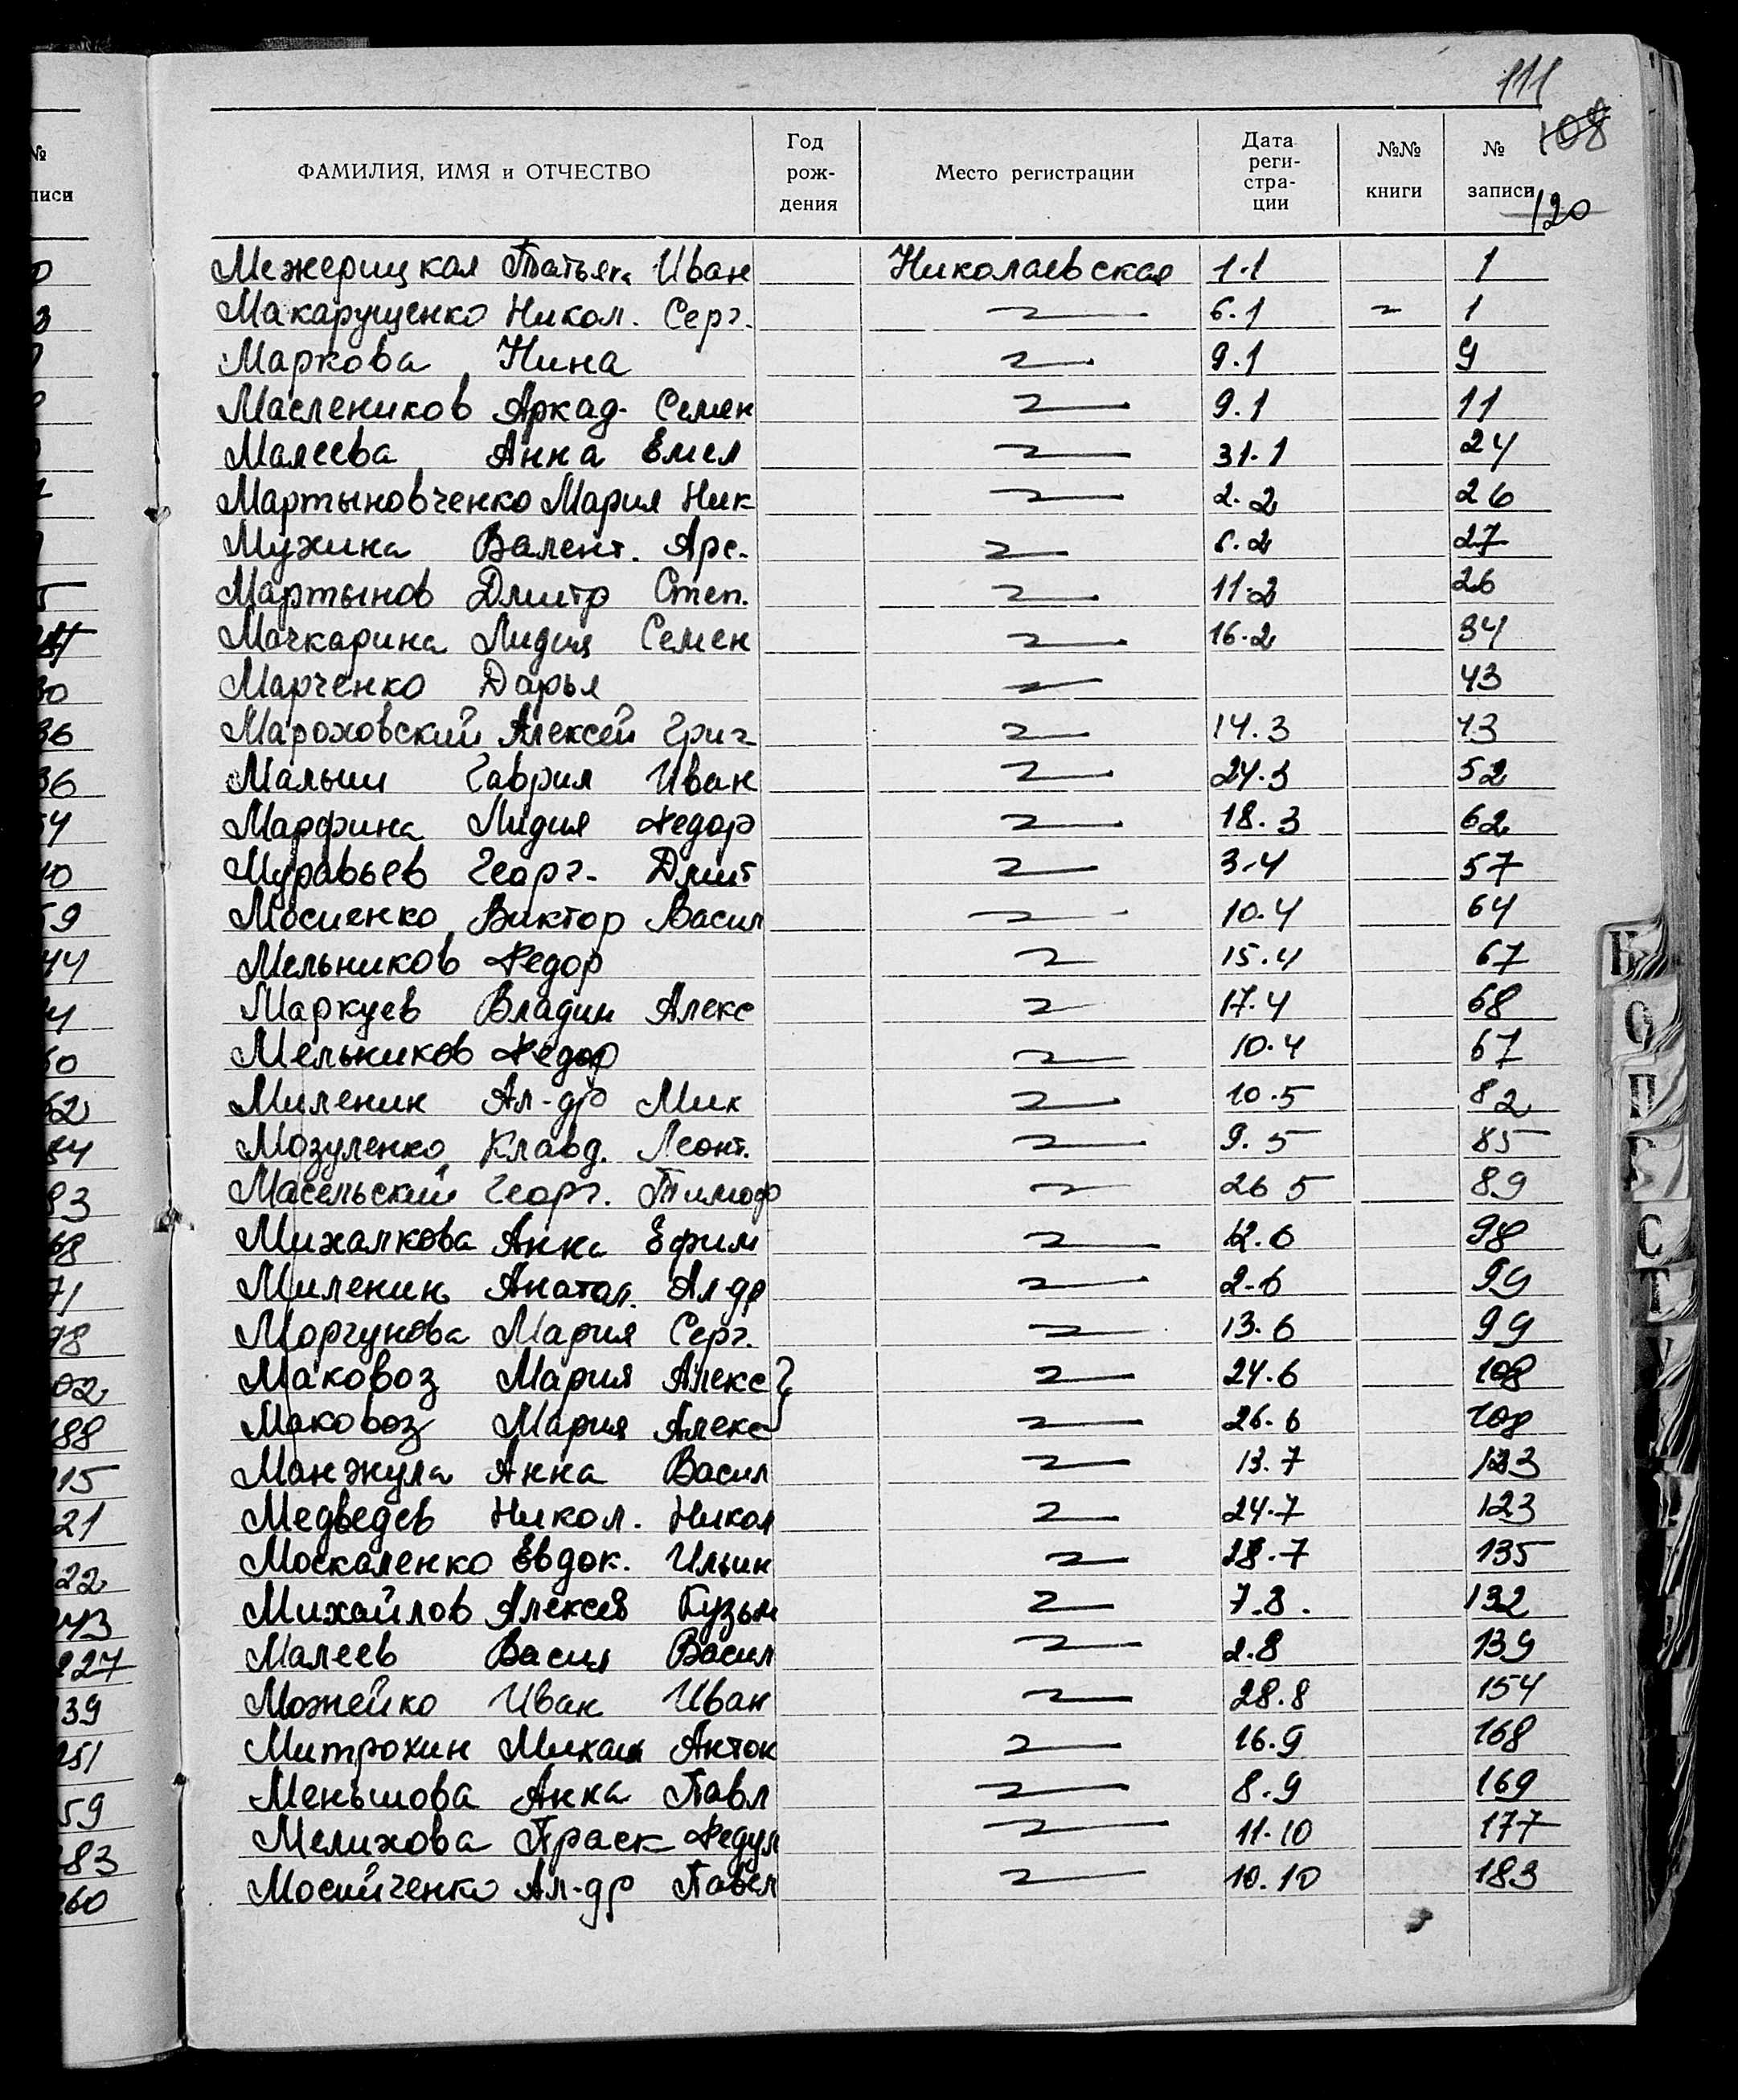 111
108
120
ФАМИЛИЯ, ИМЯ и ОТЧЕСТВО Год рож-дения Место регистрации Дата реги-стра-ции №№ книги № записи
Межерицкая Татьяна Иван Николаевская 1.1 1
Макарущенко Никол. Серг. 6.1 1
Маркова Нина 9.1 9
Маслеников Аркад. Семен 9.1 11
Малеева Анна Емел 31.1 24
Мартыновченко Мария Ник 2.2 26
Мухина Валент. Арс. 6.2 27
Мартынов Дмитр Степ. 11.2 26
Мачкарина Лидия Семен 16.2 34
Марченко Дарья 43
Мароховский Алексей Григ 14.3 43
Малыш Гаврил Иван 24.3 52
Марфина Лидия Федор 18.3 62
Муравьев Георг. Дмит 3.4 57
Мосиенко Виктор Васил 10.4 64
Мельников Федор 15.4 67
Маркуев Владим Алекс 17.4 68
Мельников Федор 10.4 67
Миленин Ал-др Мих 10.5 82
Мозуленко Клавд. Леонт. 9.5 85
Масельский Георг. Тимоф 26 5 89
Михалкова Анна Ефим 12.6 98
Миленин Анатол. Ал-др 2.6 99
Моргунова Мария Серг. 13.6 99
Маковоз Мария Алекс 24.6 108
Маковоз Мария Алекс 26.6 108
Манжула Анна Васил 13.7 123
Медведев Никол. Никол 24.7 123
Москаленко Евдок. Ильин 28.7 135
Михайлов Алексей Кузьм 7.8. 132
Малеев Васил Васил 2.8 139
Можейко Иван Иван 28.8 154
Митрохин Михаил Антон 16.9 168
Меньшова Анна Павл 8.9 169
Мелихова Праск Федул 11.10 177
Мосийченко Ал-др Павел 10.10 183